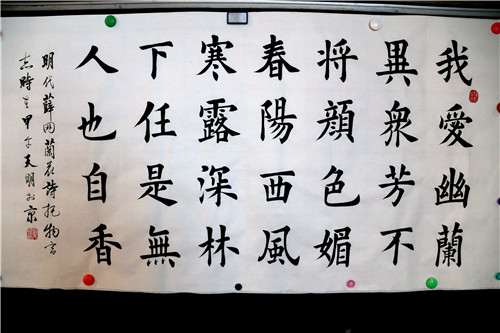 我愛幽蘭
異衆芳不
将顏色媚
春陽西風
寒露深林
下任是無
人也自香
明代薛网蘭花詩托物言
志時甲午天明於京